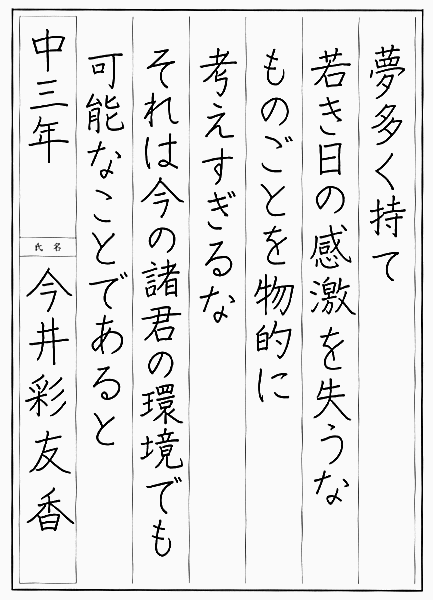 夢多く持て
若き日の感激を失うな
ものごとを物的に
考えすぎるな
それは今の諸君の環境でも
可能なことであると
中三年
氏名
今井彩友香